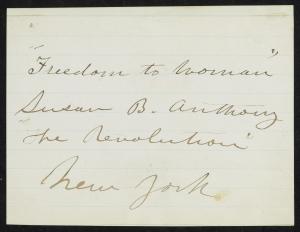 "Freedom to Woman"
Susan B. Anthony
"The Revolution"
New York